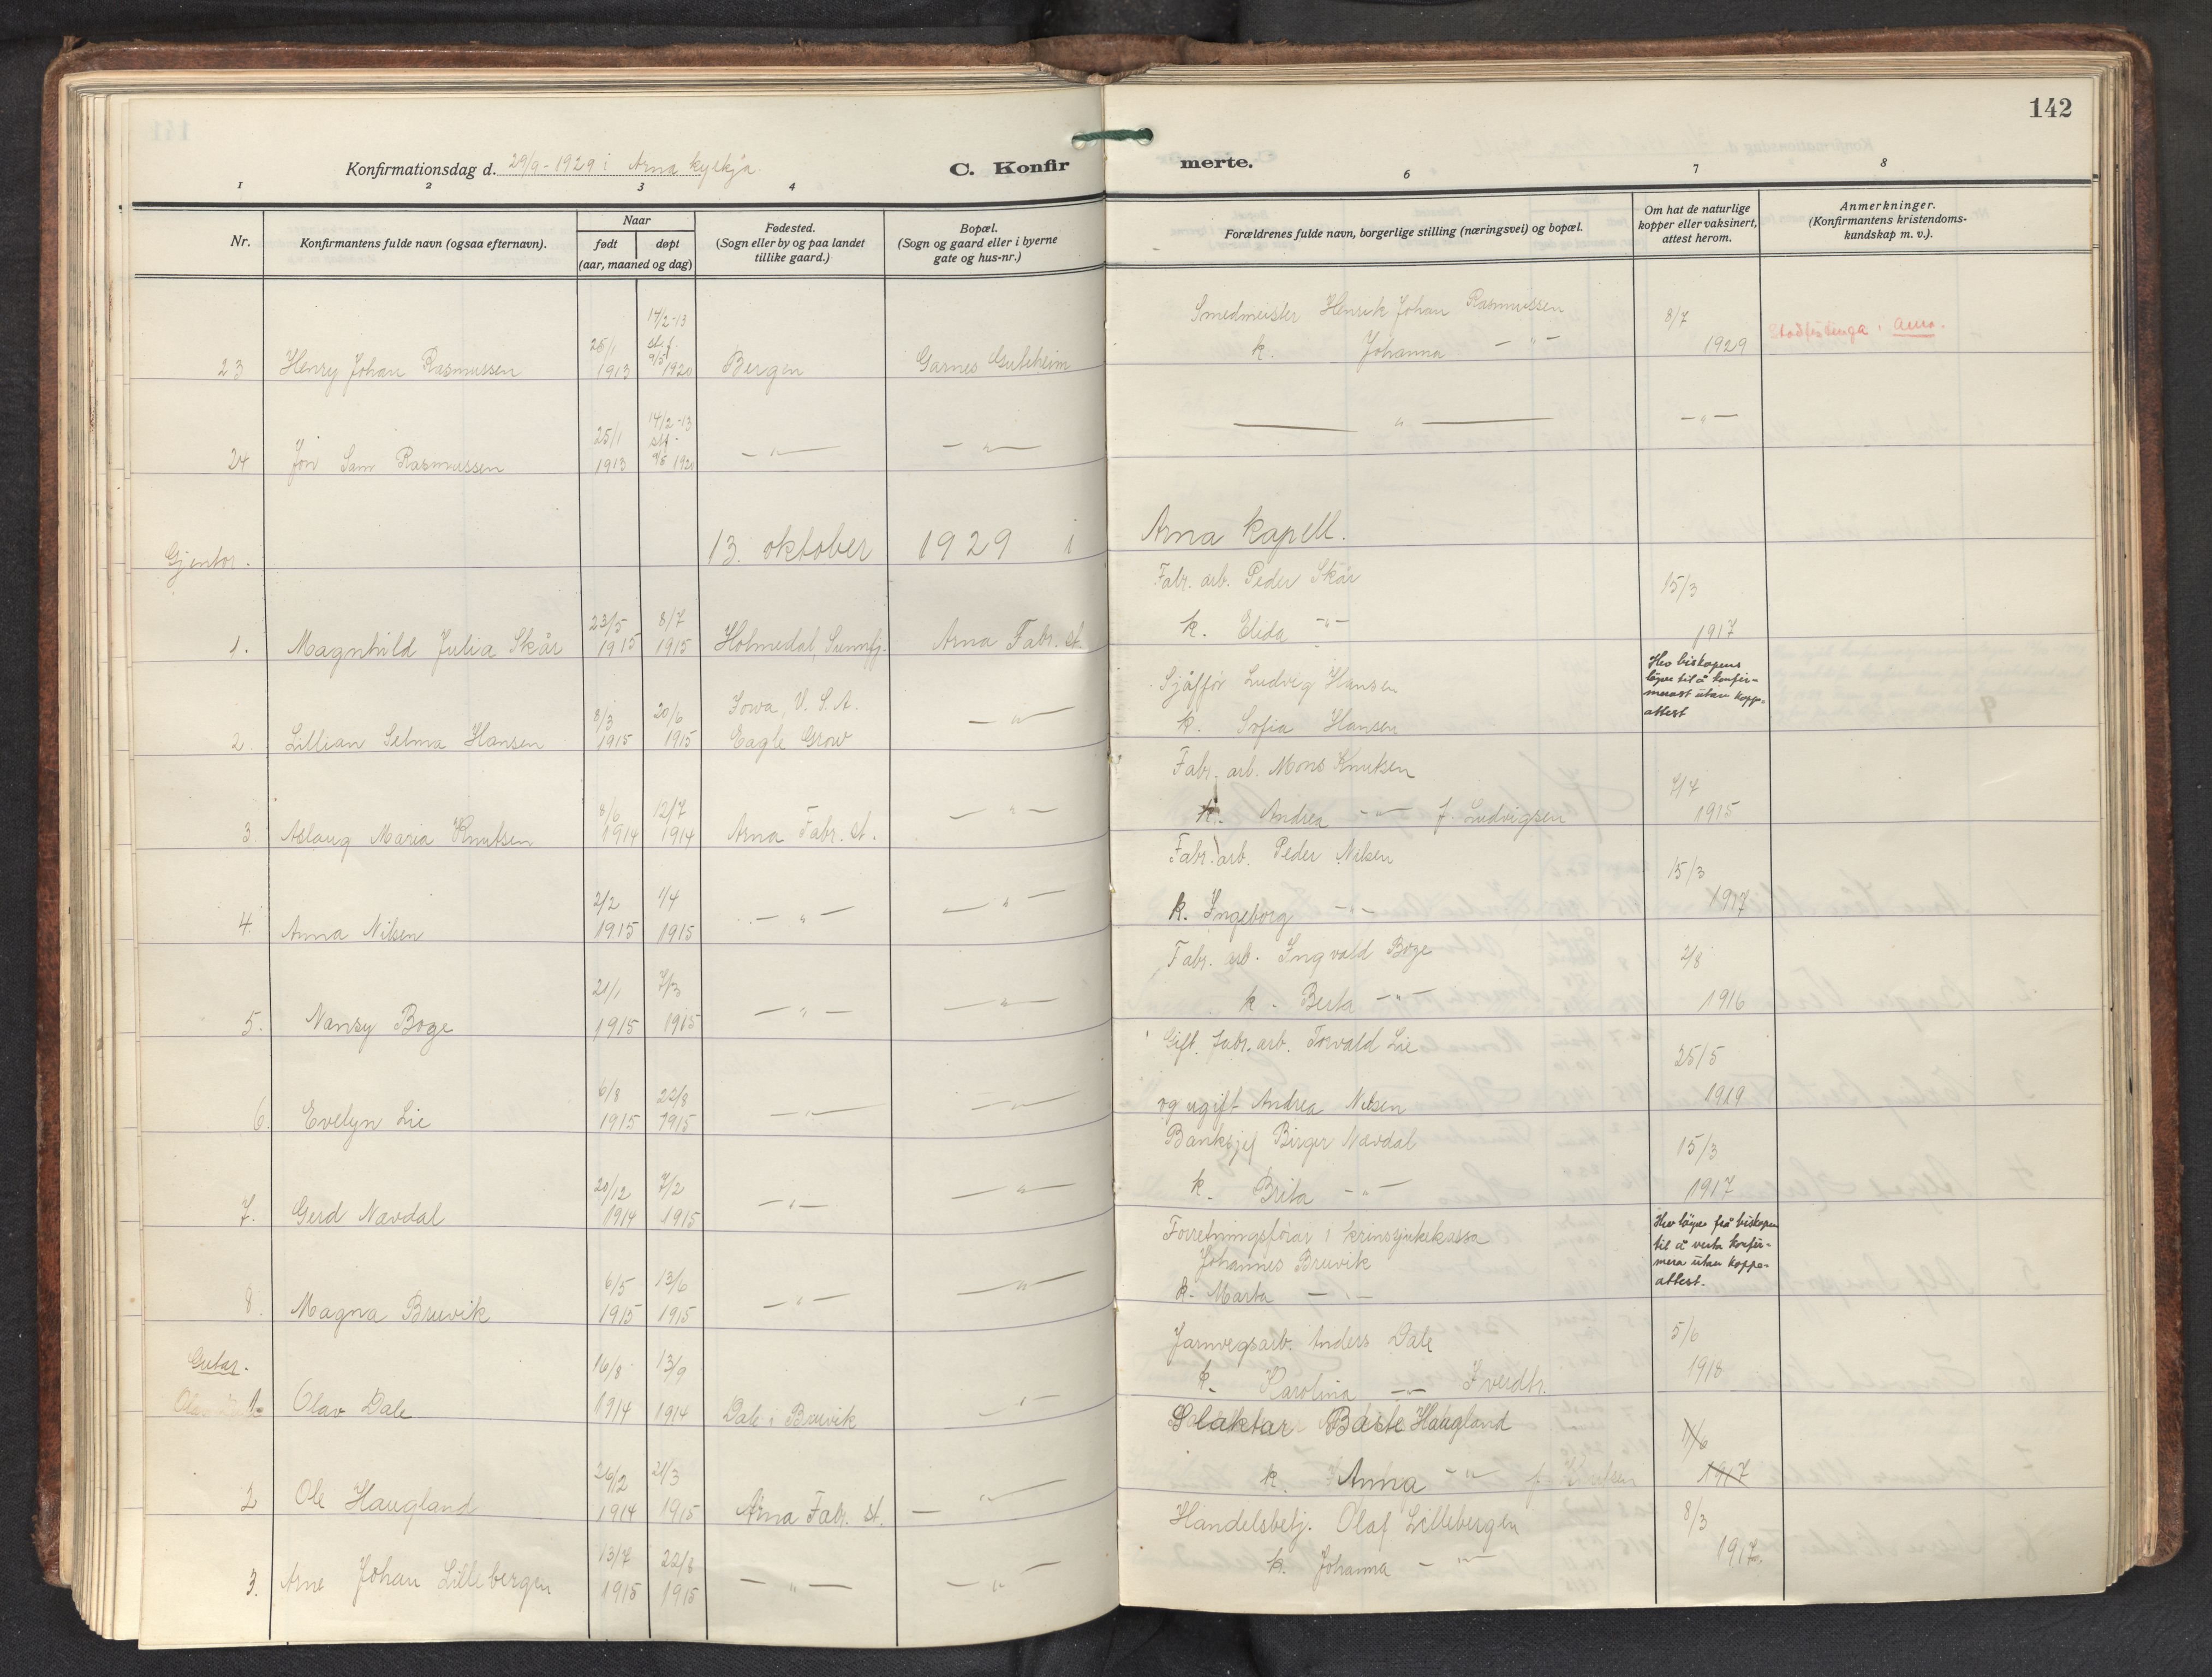 142
Konfirmationsdag d. 29/9-1929 i Arna kyrkja.
C. Konfirmerte.
1 2 3 4 6 7 8
Nr.
Konfirmantens fulde navn (ogsaa efternavn).
Naar
født
døpt
(aar, maaned og dag)
Fødested.
(Sogn eller by og paa landet
tillike gaard.)
Bopæl.
(Sogn og gaard eller i byerne
gate og hus-nr.)
Forældrenes fulde navn, borgerlige stilling (næringsvei) og bopæl.
Om hat de naturlige
kopper eller vaksinert,
attest herom.
Anmerkninger.
(Konfirmantens kristendoms-
kundskap m. v.).
Smedmeister Henrik Johan Rasmussen
k. Johanna — " —
23 Henry Johan Rasmussen 25/1 1913 14/2-13 stf. 9/5 1920 Bergen Garnes 8/7 1929 i Arna.
24 Jon Sam Rasmussen 25/1 1913 14/2-13 stf. 9/5 1920 — " — — " — — " — — " —
Gjentor. 13. oktober 1929 i Arna kapell.
Fabr. arb. Peder Skår
k. Elida — " —
1. Magnhild Julia Skår 23/5 1915 8/7 1915 Holmedal, Sunnfj. Arna Fabr. st. 15/3 1917
Sjåffør Ludvig Hansen
k. Sofia Hansen
2. Lillian Selma Hansen 8/3 1915 20/6 1915 Iowa, U.S.A. Eagle Grow — " —
Hev biskopens
løyve til å konfir-
merast utan koppe-
attest
Fabr. arb. Mons Knutsen
k. Andrea — " — f. Ludvigsen
3. Aslaug Maria Knutsen 8/6 1914 12/7 1914 Arna Fabr. st. — " — 7/7 1915
Fabr. arb. Peder Nilsen
k. Ingeborg — " —
4. Anna Nilsen 2/2 1915 1/4 1915 — " — — " — 15/3 1917
Fabr. arb. Ingvald Boge
k. Berta — " —
5. Nansy Boge 21/1 1915 7/3 1915 — " — — " — 2/8 1916
Gift. fabr. arb. Torvald Lie
og ugift Andrea Nilsen
6. Evelyn Lie 6/8 1915 22/8 1915 — " — — " — 25/5 1919
Banksjef Birger Navdal
k. Brita — " —
7. Gerd Navdal 20/12 1914 7/2 1915 — " — — " — 15/3 1917
Forretningsførar i krinssjukekassa
Johannes Bruvik
k. Marta — " —
8. Magna Bruvik 6/5 1915 13/6 1915 — " — — " —
Hev løyve frå biskopen
til å verta konfir-
mera utan koppe-
attest.
Gutar.
Jarnvegsarb. Anders Dale
k. Karolina — " —
1 Olav Dale 16/8 1914 13/9 1914 Dale i Bruvik — " — 5/6 1918
Slaktar Baste Haugland
k. Anna — " —
2 Ole Haugland 1914 21/3 1915 Arna Fabr. st. — " — 1/6 1917
Handelsbetj. Olaf Lillebergen
k. Johanna — " —
3. Arne Johan Lillebergen 13/7 1915 22/8 1915 — " — — " — 8/3 1917